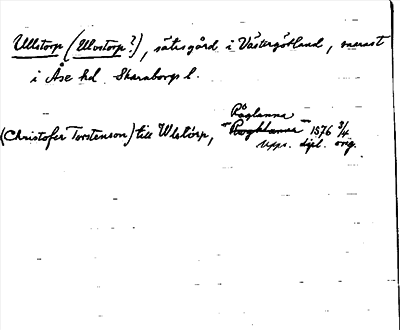 Ullstorp (Ulvstorp?), sätesgård i Västergötland, snarast
i Åse hd Skaraborgs l.
Råglanna
(Christofer Torstenson) till Wlstörp, 1576 3/4
Upps. dipl. orig.